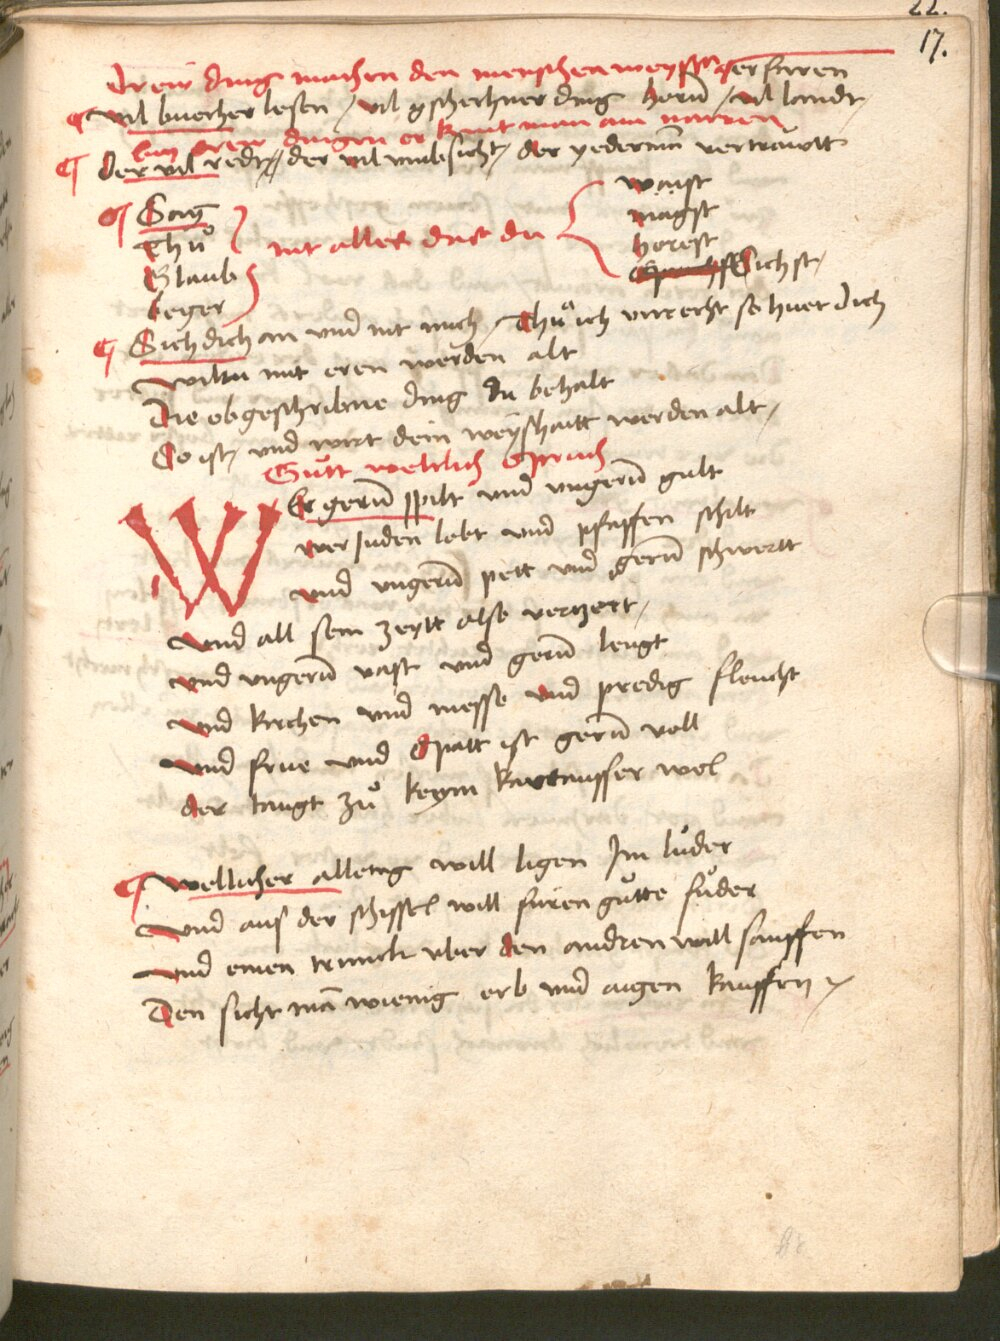 22.
17.
Dreiv ding machen den menschen weyss erfaren
vil buecher lesen / vil gschechner ding horn / vil landt
bey dreyen dingen er kent man ain narren
der vil redt / der vil umbsicht / der yederman vertrautt
Sag
Thů
Glaub
beger
nit alles das du
waist
magst
horest
Sichst /
Sich dich an und nit mich / Thů ich unrecht so huet dich
wiltu mit eren werden alt
Die obgeschribne ding du behalt
So ist / und wirt dein weyshaitt werden alt /
Gůtt weltlich Spruch
WEr gern spilt und ungern gult
wer Juden lobt und pfaffen schilt
und ungern pett und gern schwertt
und all sein zeytt also verzert /
und ungern vast und gern leugt
und kirchen und messe und predig fleucht
und frue und spatt ist gern voll
der taugt zů keym kartausser wol
Wellicher alletag will ligen Im lůder
und aus der schissel will furen gůtte fůder
und einen trunck uber den andren will sauffen
Den sicht man wienig erb und aigen kauffen